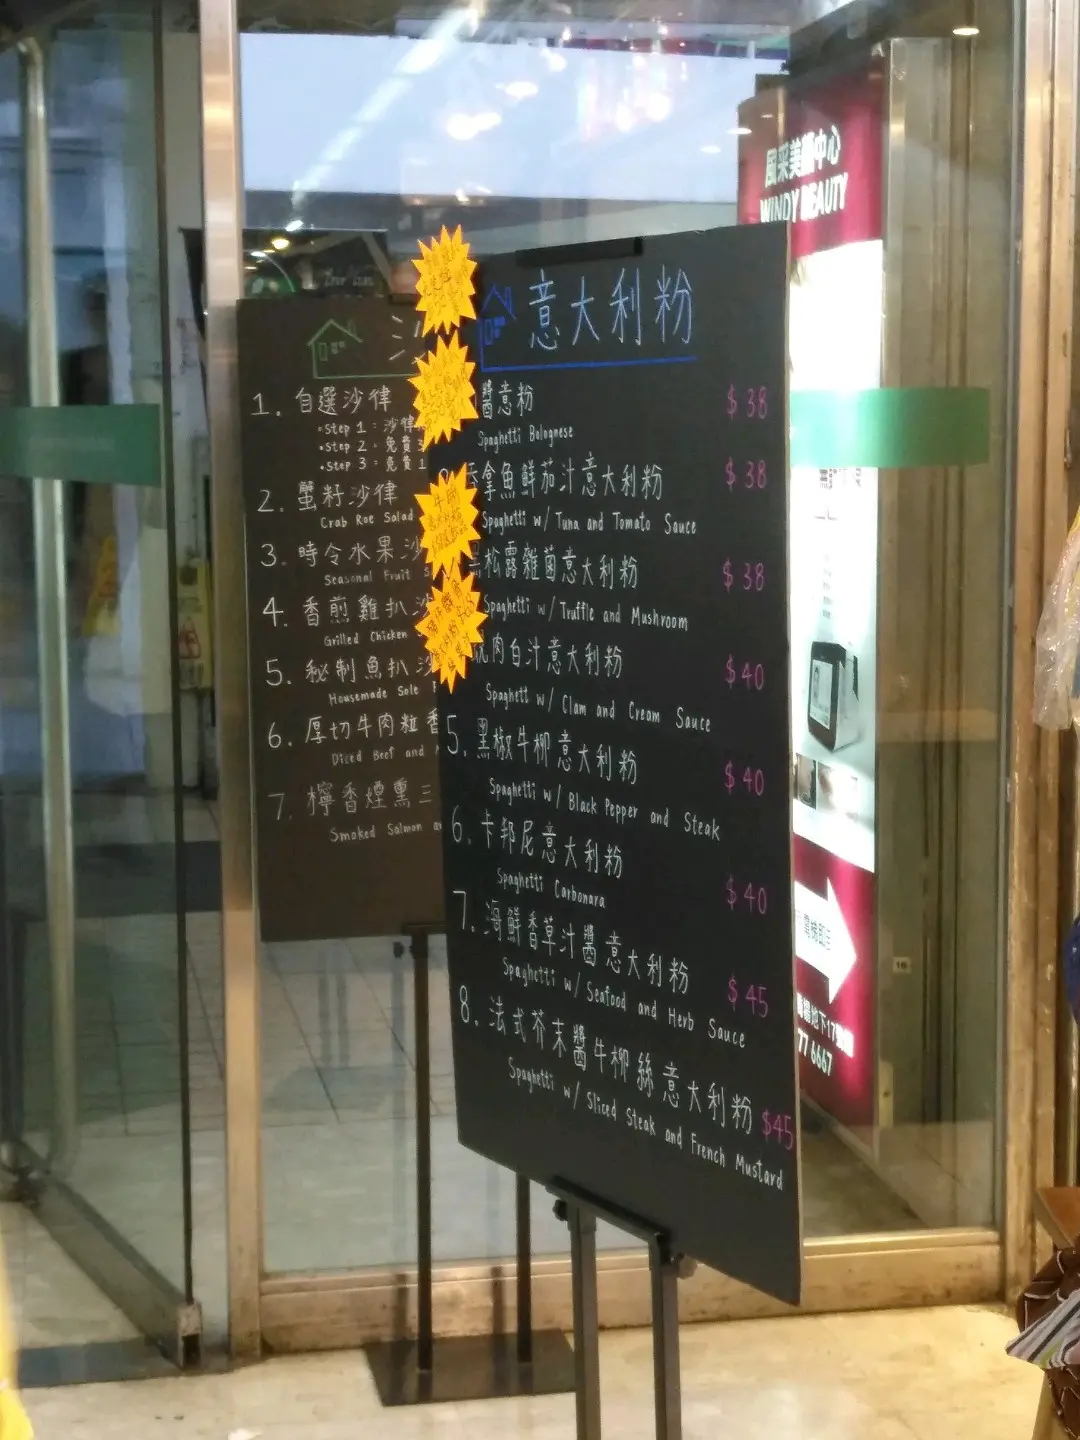 風采美容中心
WINDY BEAUTY
意大利粉
醬意粉 $38
Spaghetti Bolognese
拿魚鮮茄汁意大利粉 $38
Spaghetti w/ Tuna and Tomato Sauce
松露雜菌意大利粉 $38
Spaghetti w/ Truffle and Mushroom
肉白汁意大利粉 $40
Spaghetti w/ Clam and Cream Sauce
5. 黑椒牛柳意大利粉 $40
Spaghetti w/ Black Pepper and Steak
6. 卡邦尼意大利粉 $40
Spaghetti Carbonara
7. 海鮮香草汁醬意大利粉 $45
Spaghetti w/ Seafood and Herb Sauce
8. 法式芥末醬牛柳絲意大利粉 $45
Spaghetti w/ Sliced Steak and French Mustard
1. 自選沙律
•Step 1: 沙律
•Step 2: 免費
•Step 3: 免費1
2. 蟹籽沙律
Crab Roe Salad
3. 時令水果沙
Seasonal Fruit
4. 香煎雞扒沙
Grilled Chicken
5. 秘制魚扒沙
Housemade Sole
6. 厚切牛肉粒香
Diced Beef and
7. 檸香煙熏三
Smoked Salmon
77 6667
16